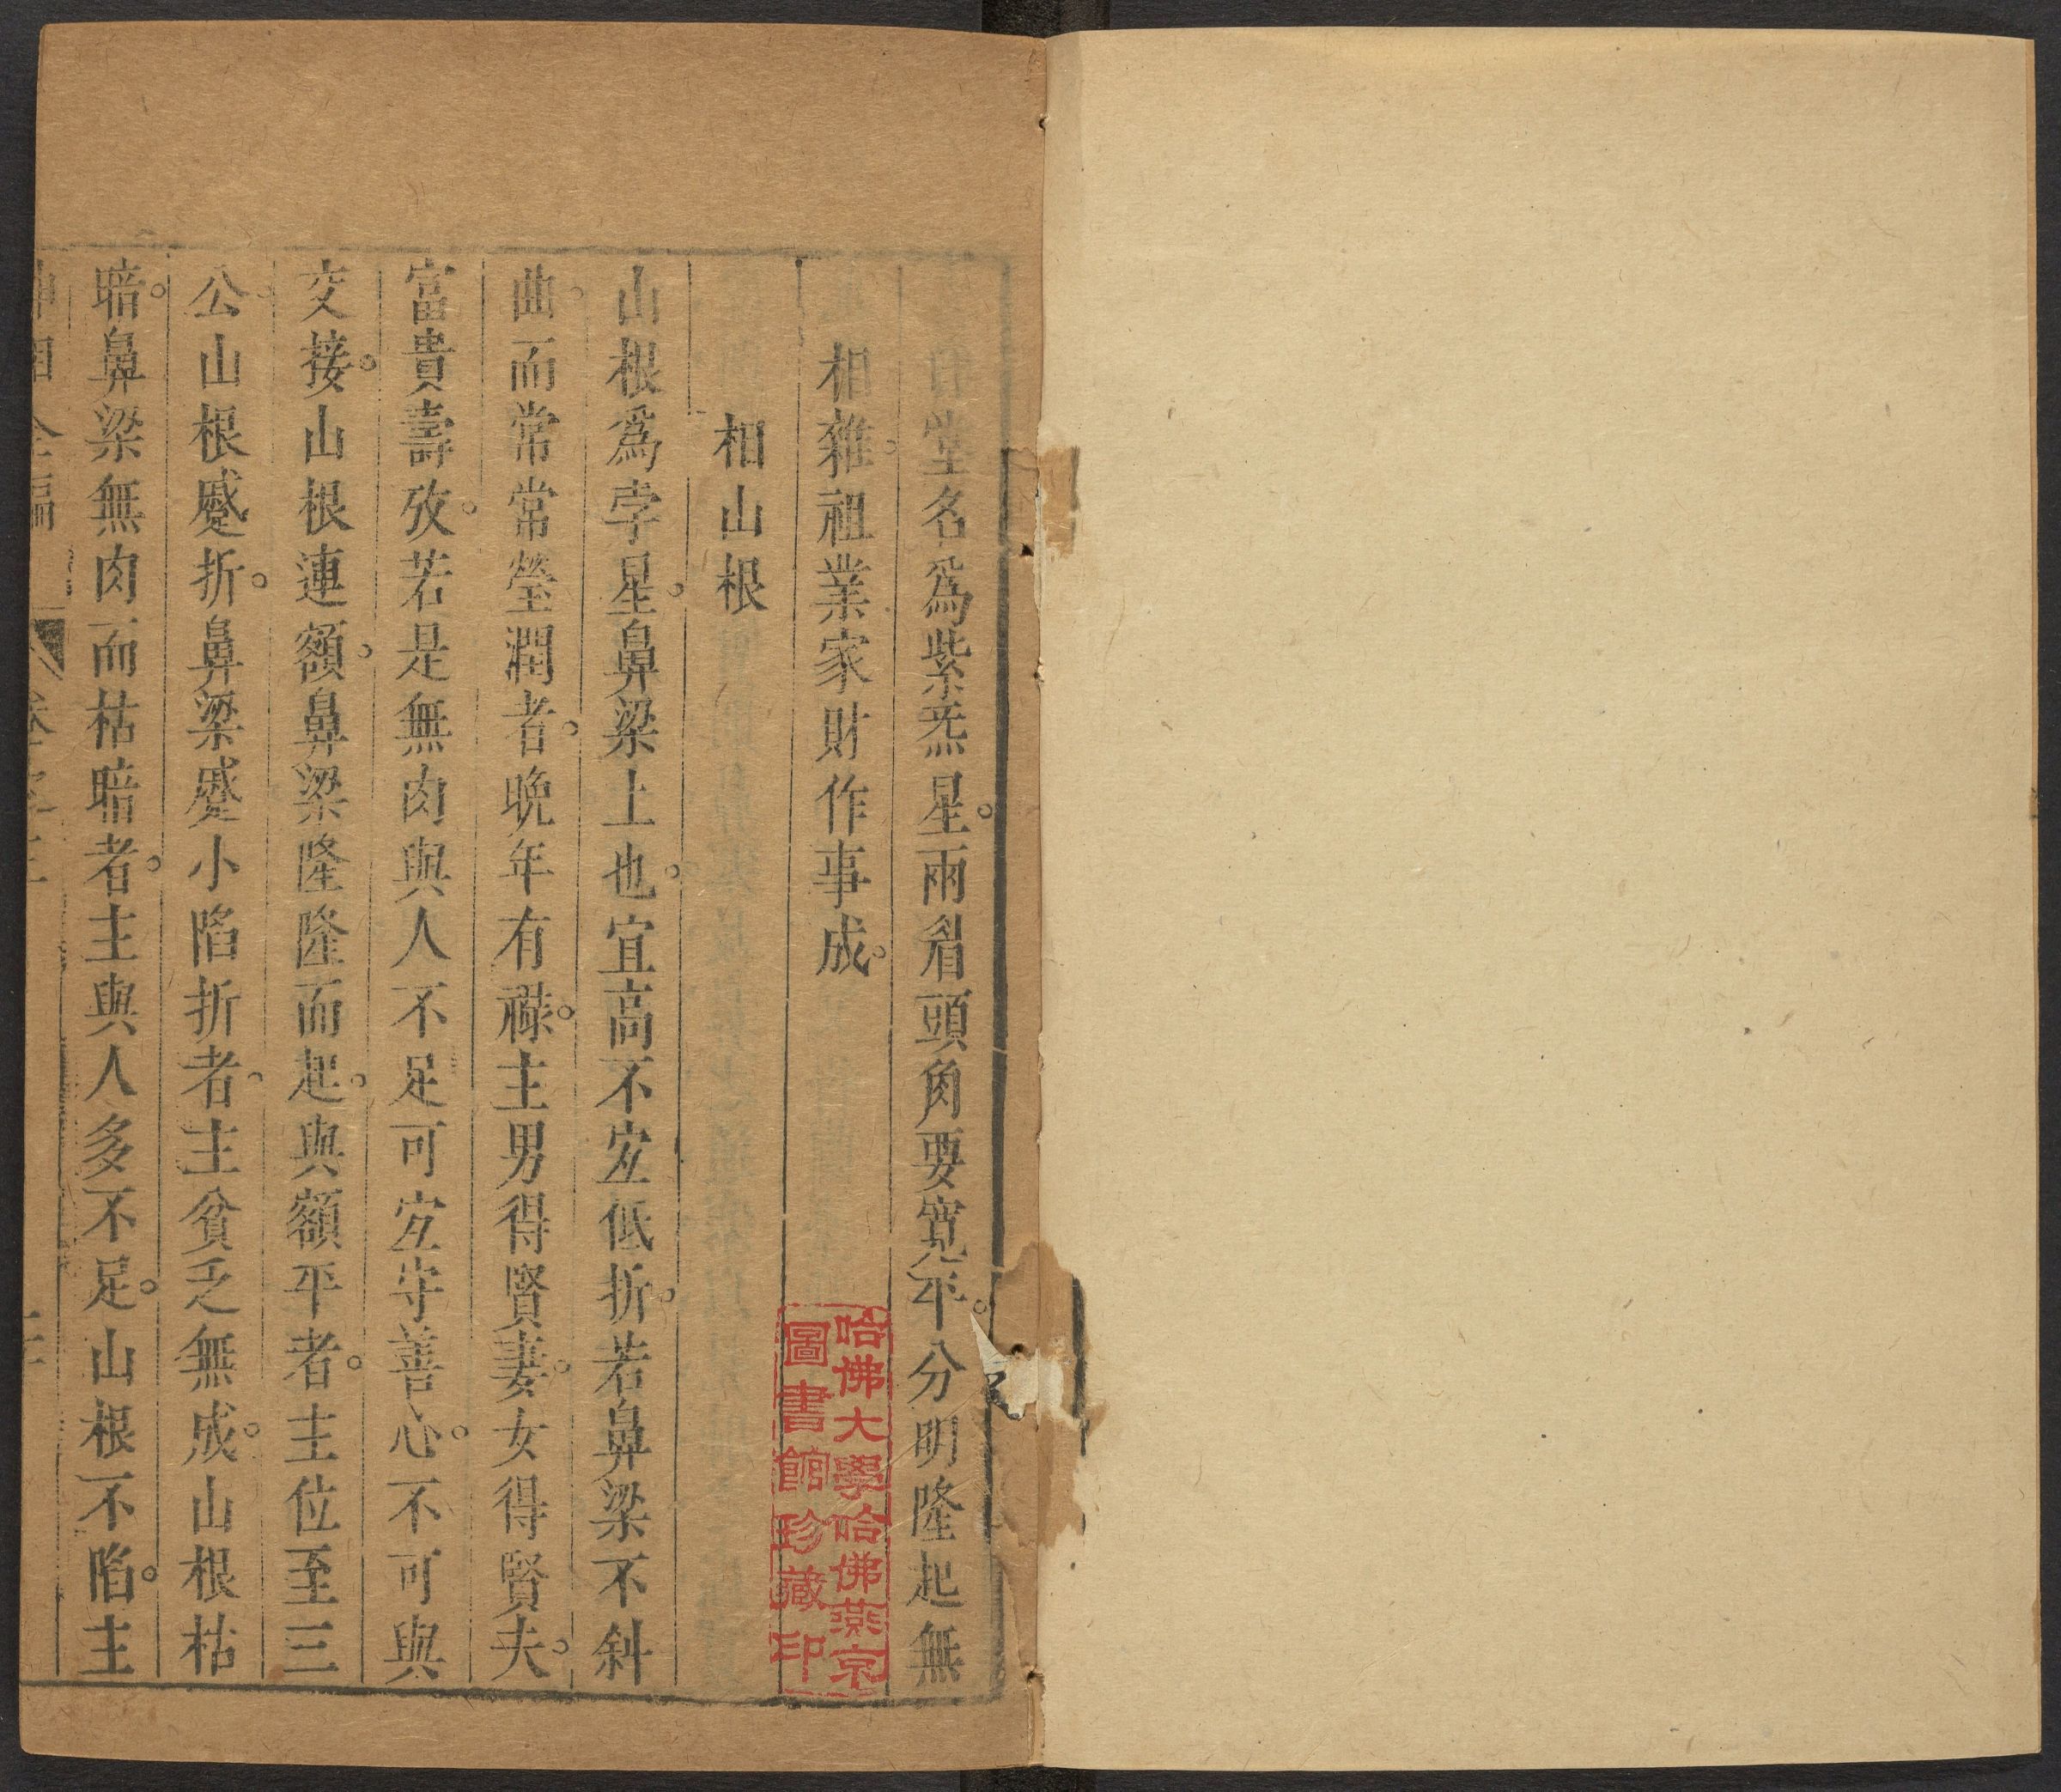 堂名爲紫炁星兩眉頭角要寬平分明隆起無
相雜祖業家財作事成
相山根
山根爲孛星鼻梁上也宜高不宐低折若鼻梁不斜
曲而常常瑩潤者晩年有祿主男得賢妻女得賢夫
富貴壽攷若是無肉與人不足可宐守善心不可與
交接山根連額鼻梁隆隆而起與額平者主位至三
公山根蹙折鼻梁蹙小陷折者主貧乏無成山根枯
暗鼻梁無肉而枯暗者主與人多不足山根不陷主
神相全編
哈佛大學哈佛燕京
圖書館珍藏印